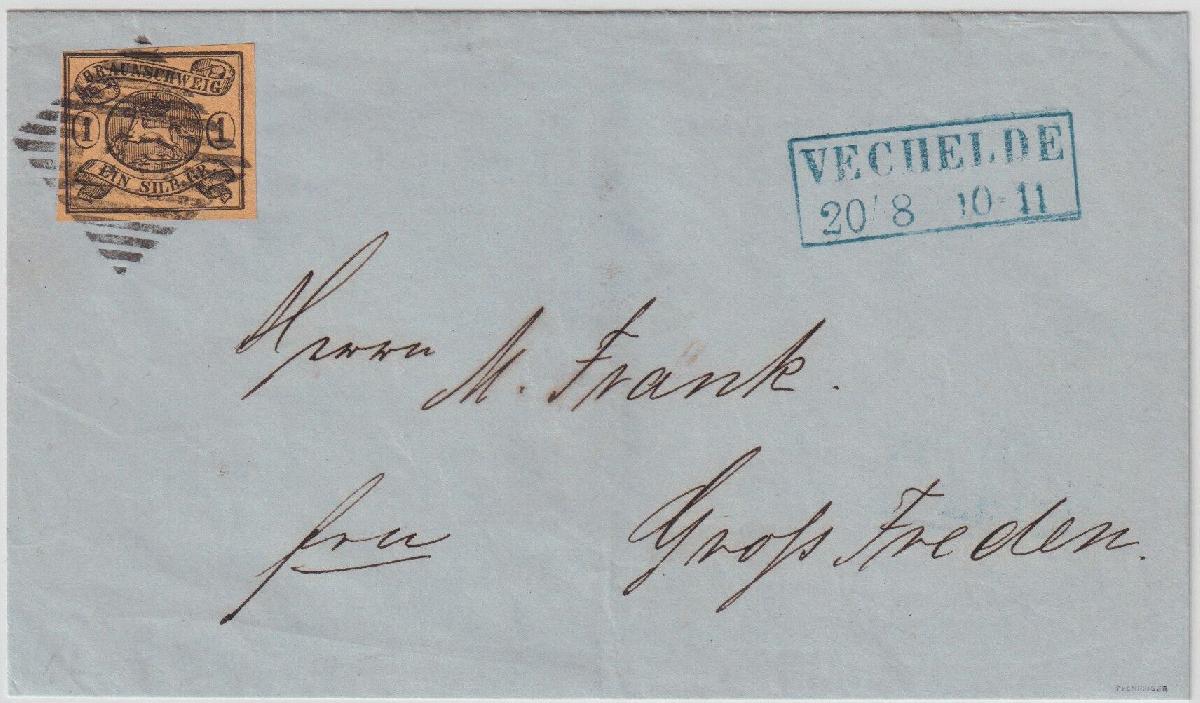 BRAUNSCHWEIG
1 1
EIN SILB.GR.
VECHELDE
20/8 10-11
Herrn M. Frank.
fru Groſs Freden.